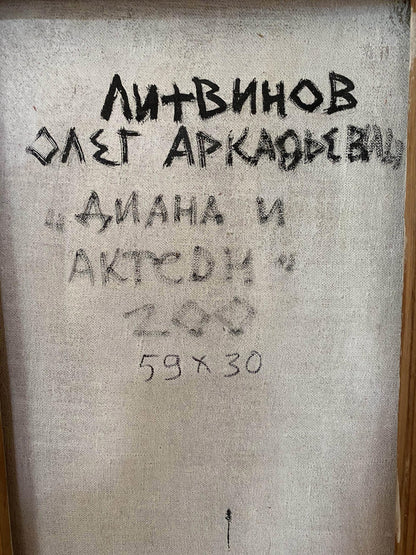 ЛИТВИНОВ
ОЛЕГ АРКАДЬЕВИЧ
„ДИАНА И
АКТЕОН"
200
59 x 30